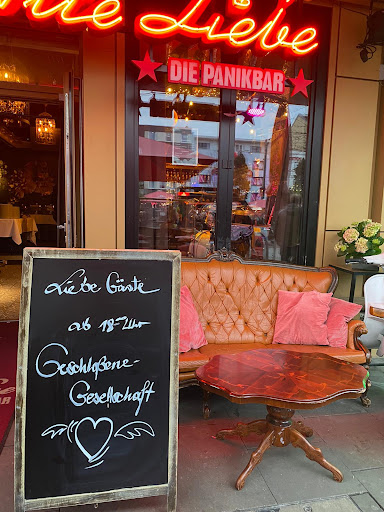 Liebe
DIE PANIKBAR
Liebe Gäste
ab 18-Uhr
Geschloßene-
Gesellschaft